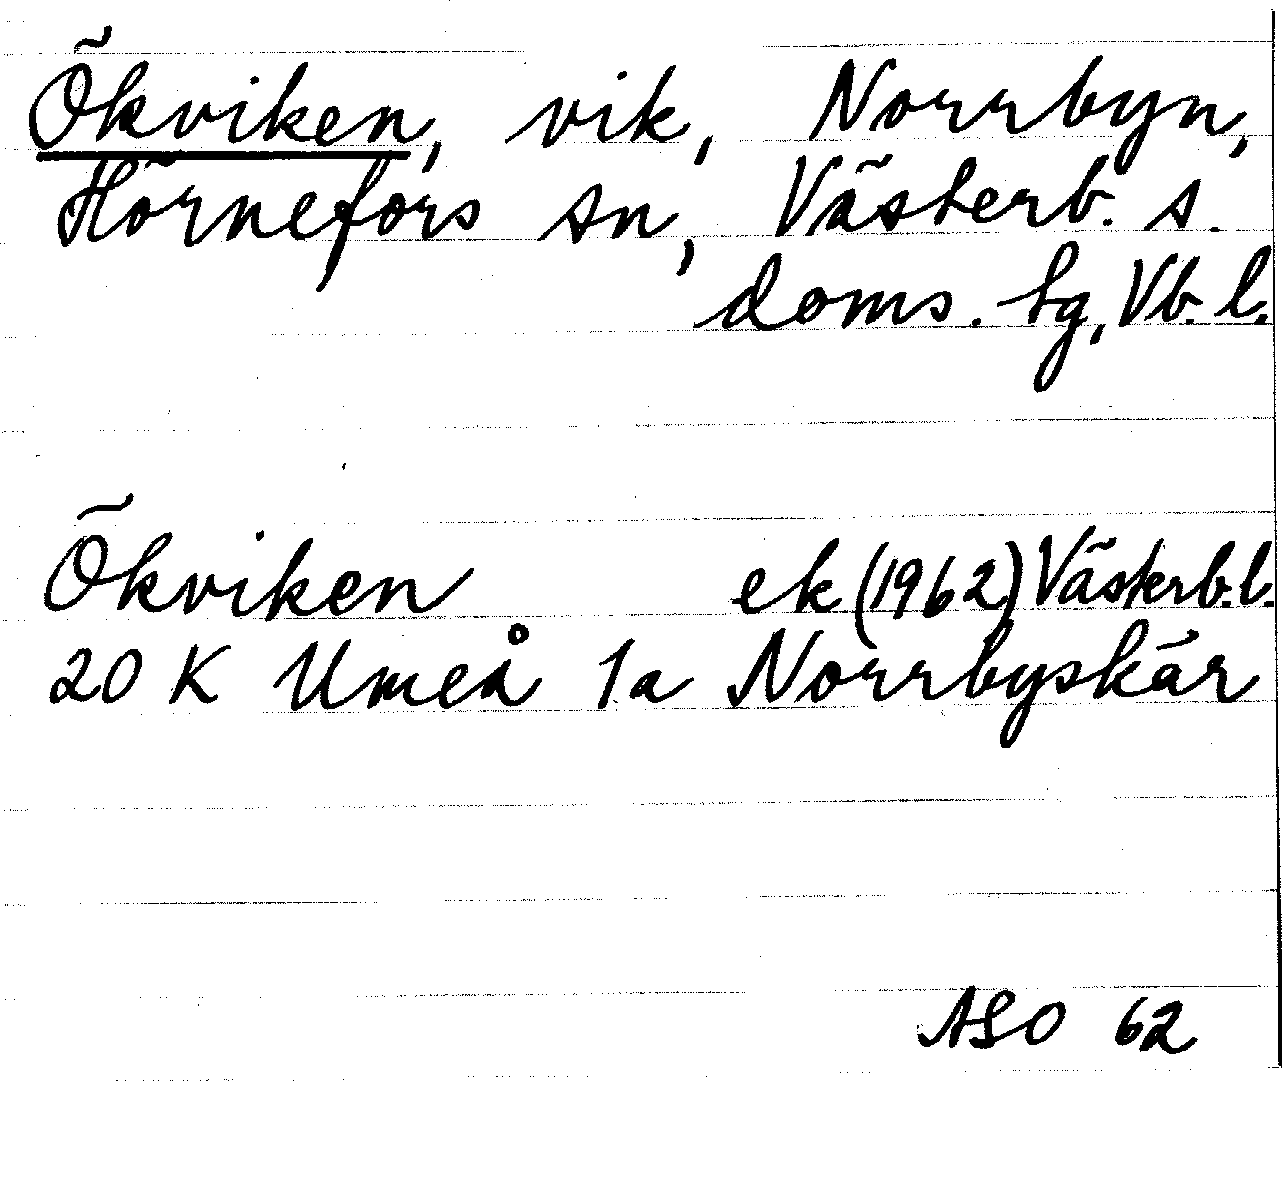 Ökviken, vik, Norrbyn,
Hörnefors sn, Västerb. s.
doms. tg, Vb. l.
Ökviken ek (1962) Västerb. l.
20 K Umeå 1a Norrbyskär
ASO 62